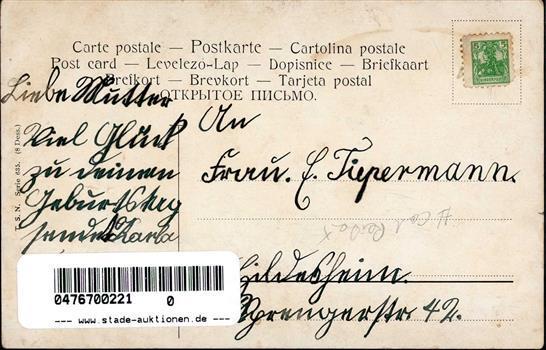 Carte postale — Postkarte — Cartolina postale
Post card — Levelezo-Lap — Dopisnice — Briefkaart
Brefkort — Brevkort — Tarjeta postal
ОТКРЫТОЕ ПИСЬМО.
Liebe Mutter
Viel Glück
zu deinem
Geburtstag
sendet
T. S. N. Serie 635. (8 Dess.)
An
Frau. E. Tiepermann.
Hildesheim.
Sprengerstr 42.
0476700221 0
--- www.stade-auktionen.de ---